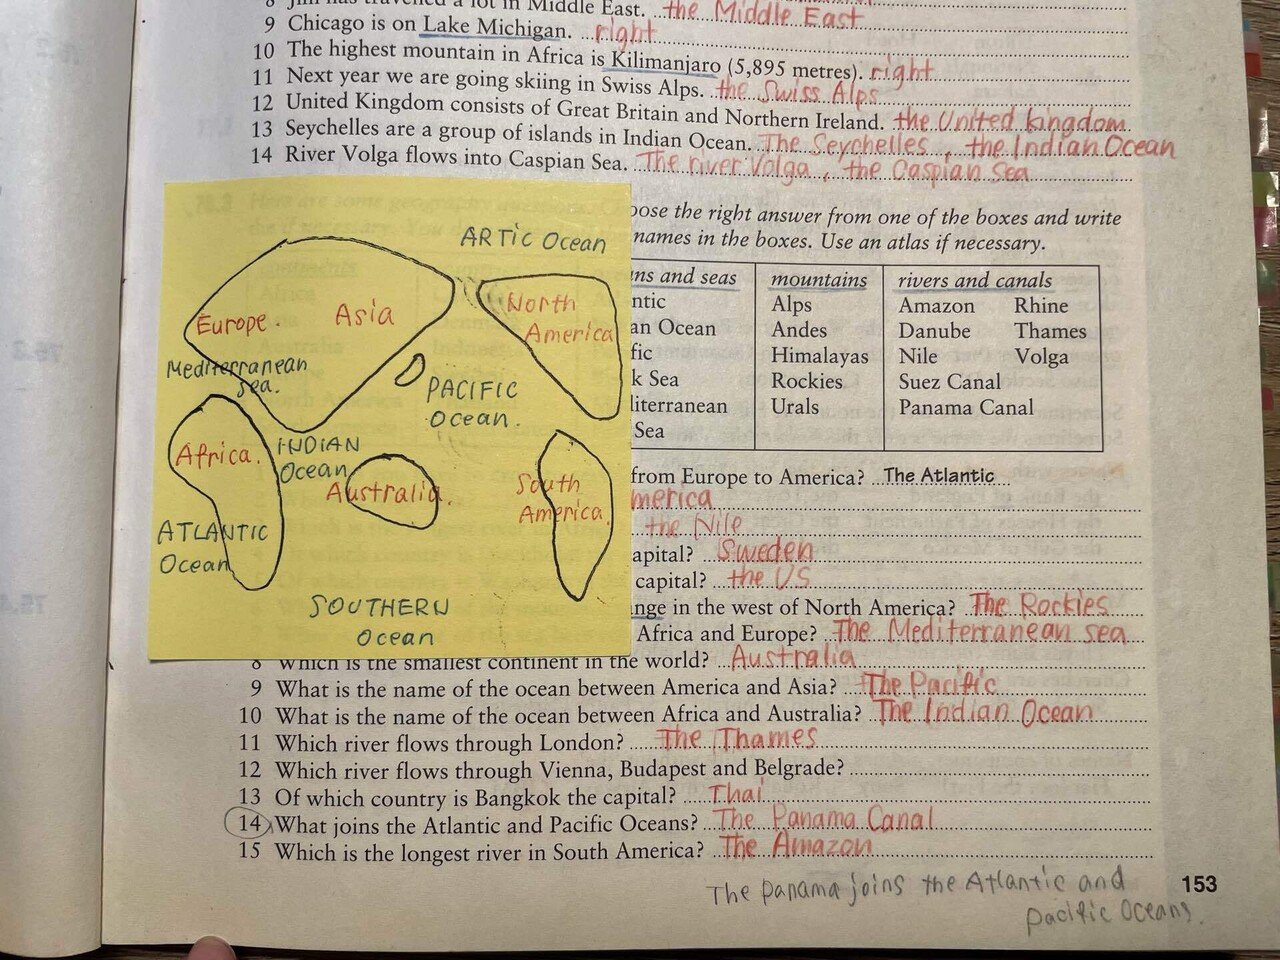 8 Jim has travelled a lot in Middle East. the Middle East
9 Chicago is on Lake Michigan. right
10 The highest mountain in Africa is Kilimanjaro (5,895 metres). right
11 Next year we are going skiing in Swiss Alps. the Swiss Alps
12 United Kingdom consists of Great Britain and Northern Ireland. the United kingdom
13 Seychelles are a group of islands in Indian Ocean. The Seychelles, the Indian Ocean
14 River Volga flows into Caspian Sea. The river Volga, the Caspian Sea
oose the right answer from one of the boxes and write
names in the boxes. Use an atlas if necessary.
ns and seas mountains rivers and canals
ntic Alps Amazon Rhine
an Ocean Andes Danube Thames
fic Himalayas Nile Volga
k Sea Rockies Suez Canal
literranean Urals Panama Canal
Sea
ARTIC Ocean
Europe. Asia North America
Mediterranean Sea.
PACIFIC Ocean.
Africa. INDIAN Ocean
Australia. South America.
ATLANTIC Ocean
SOUTHERN Ocean
from Europe to America? The Atlantic
merica
the Nile
apital? Sweden
capital? the US
nge in the west of North America? The Rockies
Africa and Europe? The Mediterranean sea
8 Which is the smallest continent in the world? Australia
9 What is the name of the ocean between America and Asia? The Pacific
10 What is the name of the ocean between Africa and Australia? The Indian Ocean
11 Which river flows through London? The Thames
12 Which river flows through Vienna, Budapest and Belgrade?
13 Of which country is Bangkok the capital? Thai
14 What joins the Atlantic and Pacific Oceans? The Panama Canal
15 Which is the longest river in South America? The Amazon
The panama joins the Atlantic and
pacific Oceans.
153